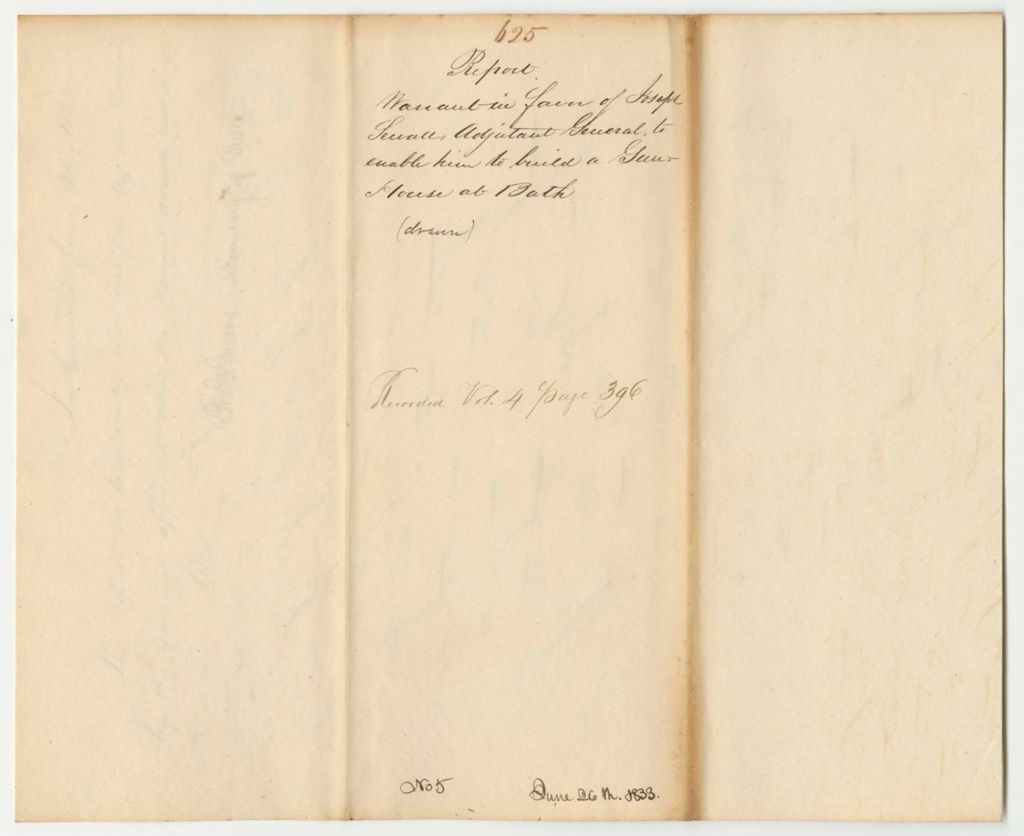 625
Report
Warrant in favor of Joseph
Sewall, Adjutant General, to
enable him to build a Gun-
House at Bath
(drawn)
Recorded Vol. 4 page 396
No 5
June 26th. 1833.